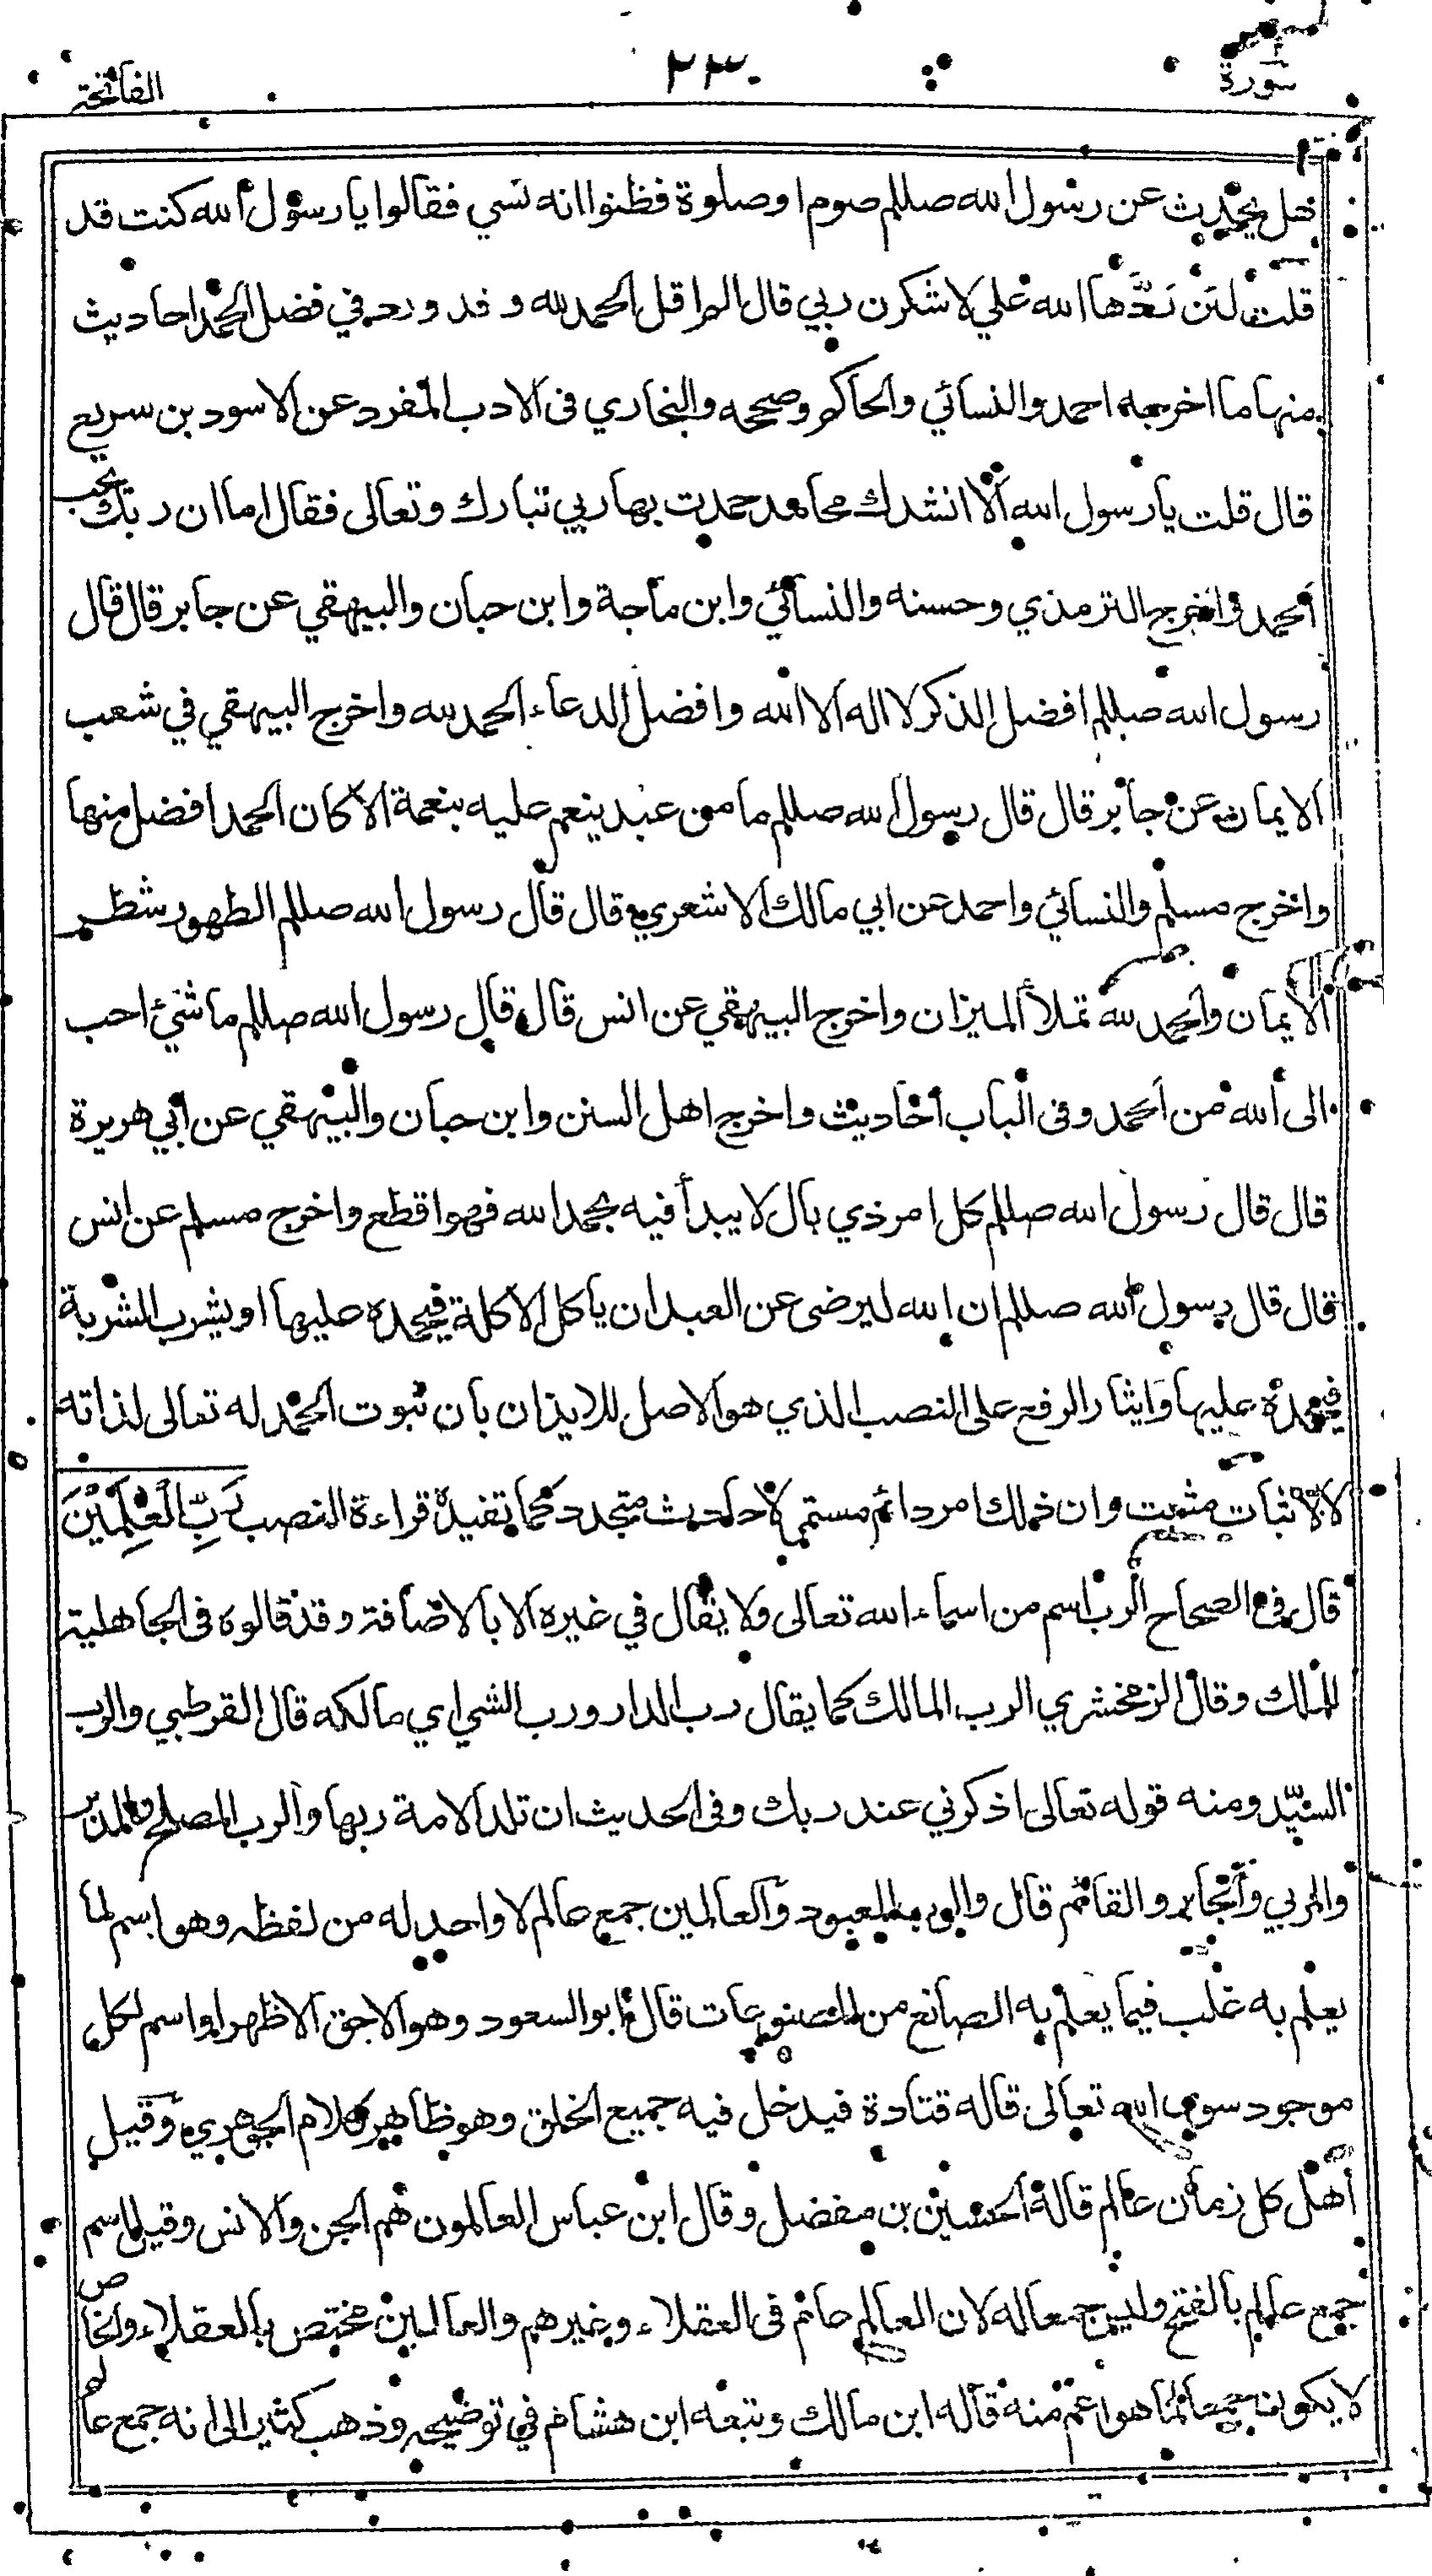 سورة ٢٣٠ الفاتحة
هل يحدث عن رسول الله صللم صوما او صلوة فظنوا انه نسي فقالوا يا رسول الله كنت قد
قلت لئن ردها الله علي لاشكرن ربي قال الم اقل الحمد لله وقد ورد في فضل الحمد احاديث
منها ما اخرجه احمد والنسائي والحاكم وصححه والبخاري فى الادب المفرد عن الاسود بن سريع
قال قلت يا رسول الله ألا انشدك محامد حمدت بها ربي تبارك وتعالى فقال اما ان ربك يحب
الحمد واخرج الترمذي وحسنه والنسائي وابن ماجة وابن حبان والبيهقي عن جابر قال قال
رسول الله صللم افضل الذكر لا اله الا الله وافضل الدعاء الحمد لله واخرج البيهقي في شعب
الايمان عن جابر قال قال رسول الله صللم ما من عبد ينعم عليه بنعمة الا كان الحمد افضل منها
واخرج مسلم والنسائي واحمد عن ابي مالك الاشعري قال قال رسول الله صللم الطهور شطر
الايمان والحمد لله تملأ الميزان واخرج البيهقي عن انس قال قال رسول الله صللم ما شيئ احب
الى الله من الحمد وفى الباب أحاديث واخرج اهل السنن وابن حبان والبيهقي عن أبي هريرة
قال قال رسول الله صللم كل امر ذي بال لا يبدأ فيه بحمد الله فهو اقطع واخرج مسلم عن انس
قال قال رسول الله صللم ان الله ليرضى عن العبد ان ياكل الاكلة فيحمده عليها او يشرب الشربة
فيحمده عليها وايثار الرفع على النصب الذي هو الاصل للايذان بان ثبوت الحمد له تعالى لذاته
لا لاثبات مثبت وان ذلك امر دائم مستمر لا حادث متجدد كما تفيده قراءة النصب رَبِّ الْعٰلَمِيْنَ
قال في الصحاح الرب اسم من اسماء الله تعالى ولا يقال في غيره الا بالاضافة وقد قالوه فى الجاهلية
للملك وقال الزمخشري الرب المالك كما يقال رب الدار ورب الشي اي مالكه قال القرطبي والرب
السيّد ومنه قوله تعالى اذكرني عند ربك وفى الحديث ان تلد الامة ربها والرب المصلح والمدبر
والمربي والجابر والقائم قال والرب المعبود والعالمين جمع عالم لا واحد له من لفظه وهو اسم لما
يعلم به غلب فيما يعلم به الصانع من المصنوعات قاله ابو السعود وهو الاحق الاظهر او اسم لكل
موجود سوى الله تعالى قاله قتادة فيدخل فيه جميع الخلق وهو ظاهر كلام الجوهري وقيل
أهل كل زمان عالم قاله الحسين بن مفضل وقال ابن عباس العالمون هم الجن والانس وقيل اسم
جمع عالم بالفتح وليس جمعا له لان العالم عام فى العقلاء وغيرهم والعالمين مختص بالعقلاء والخاص
لا يكون جمعا لما هو اعم منه قاله ابن مالك وتبعه ابن هشام في توضيحه وذهب كثير الى انه جمع عالم